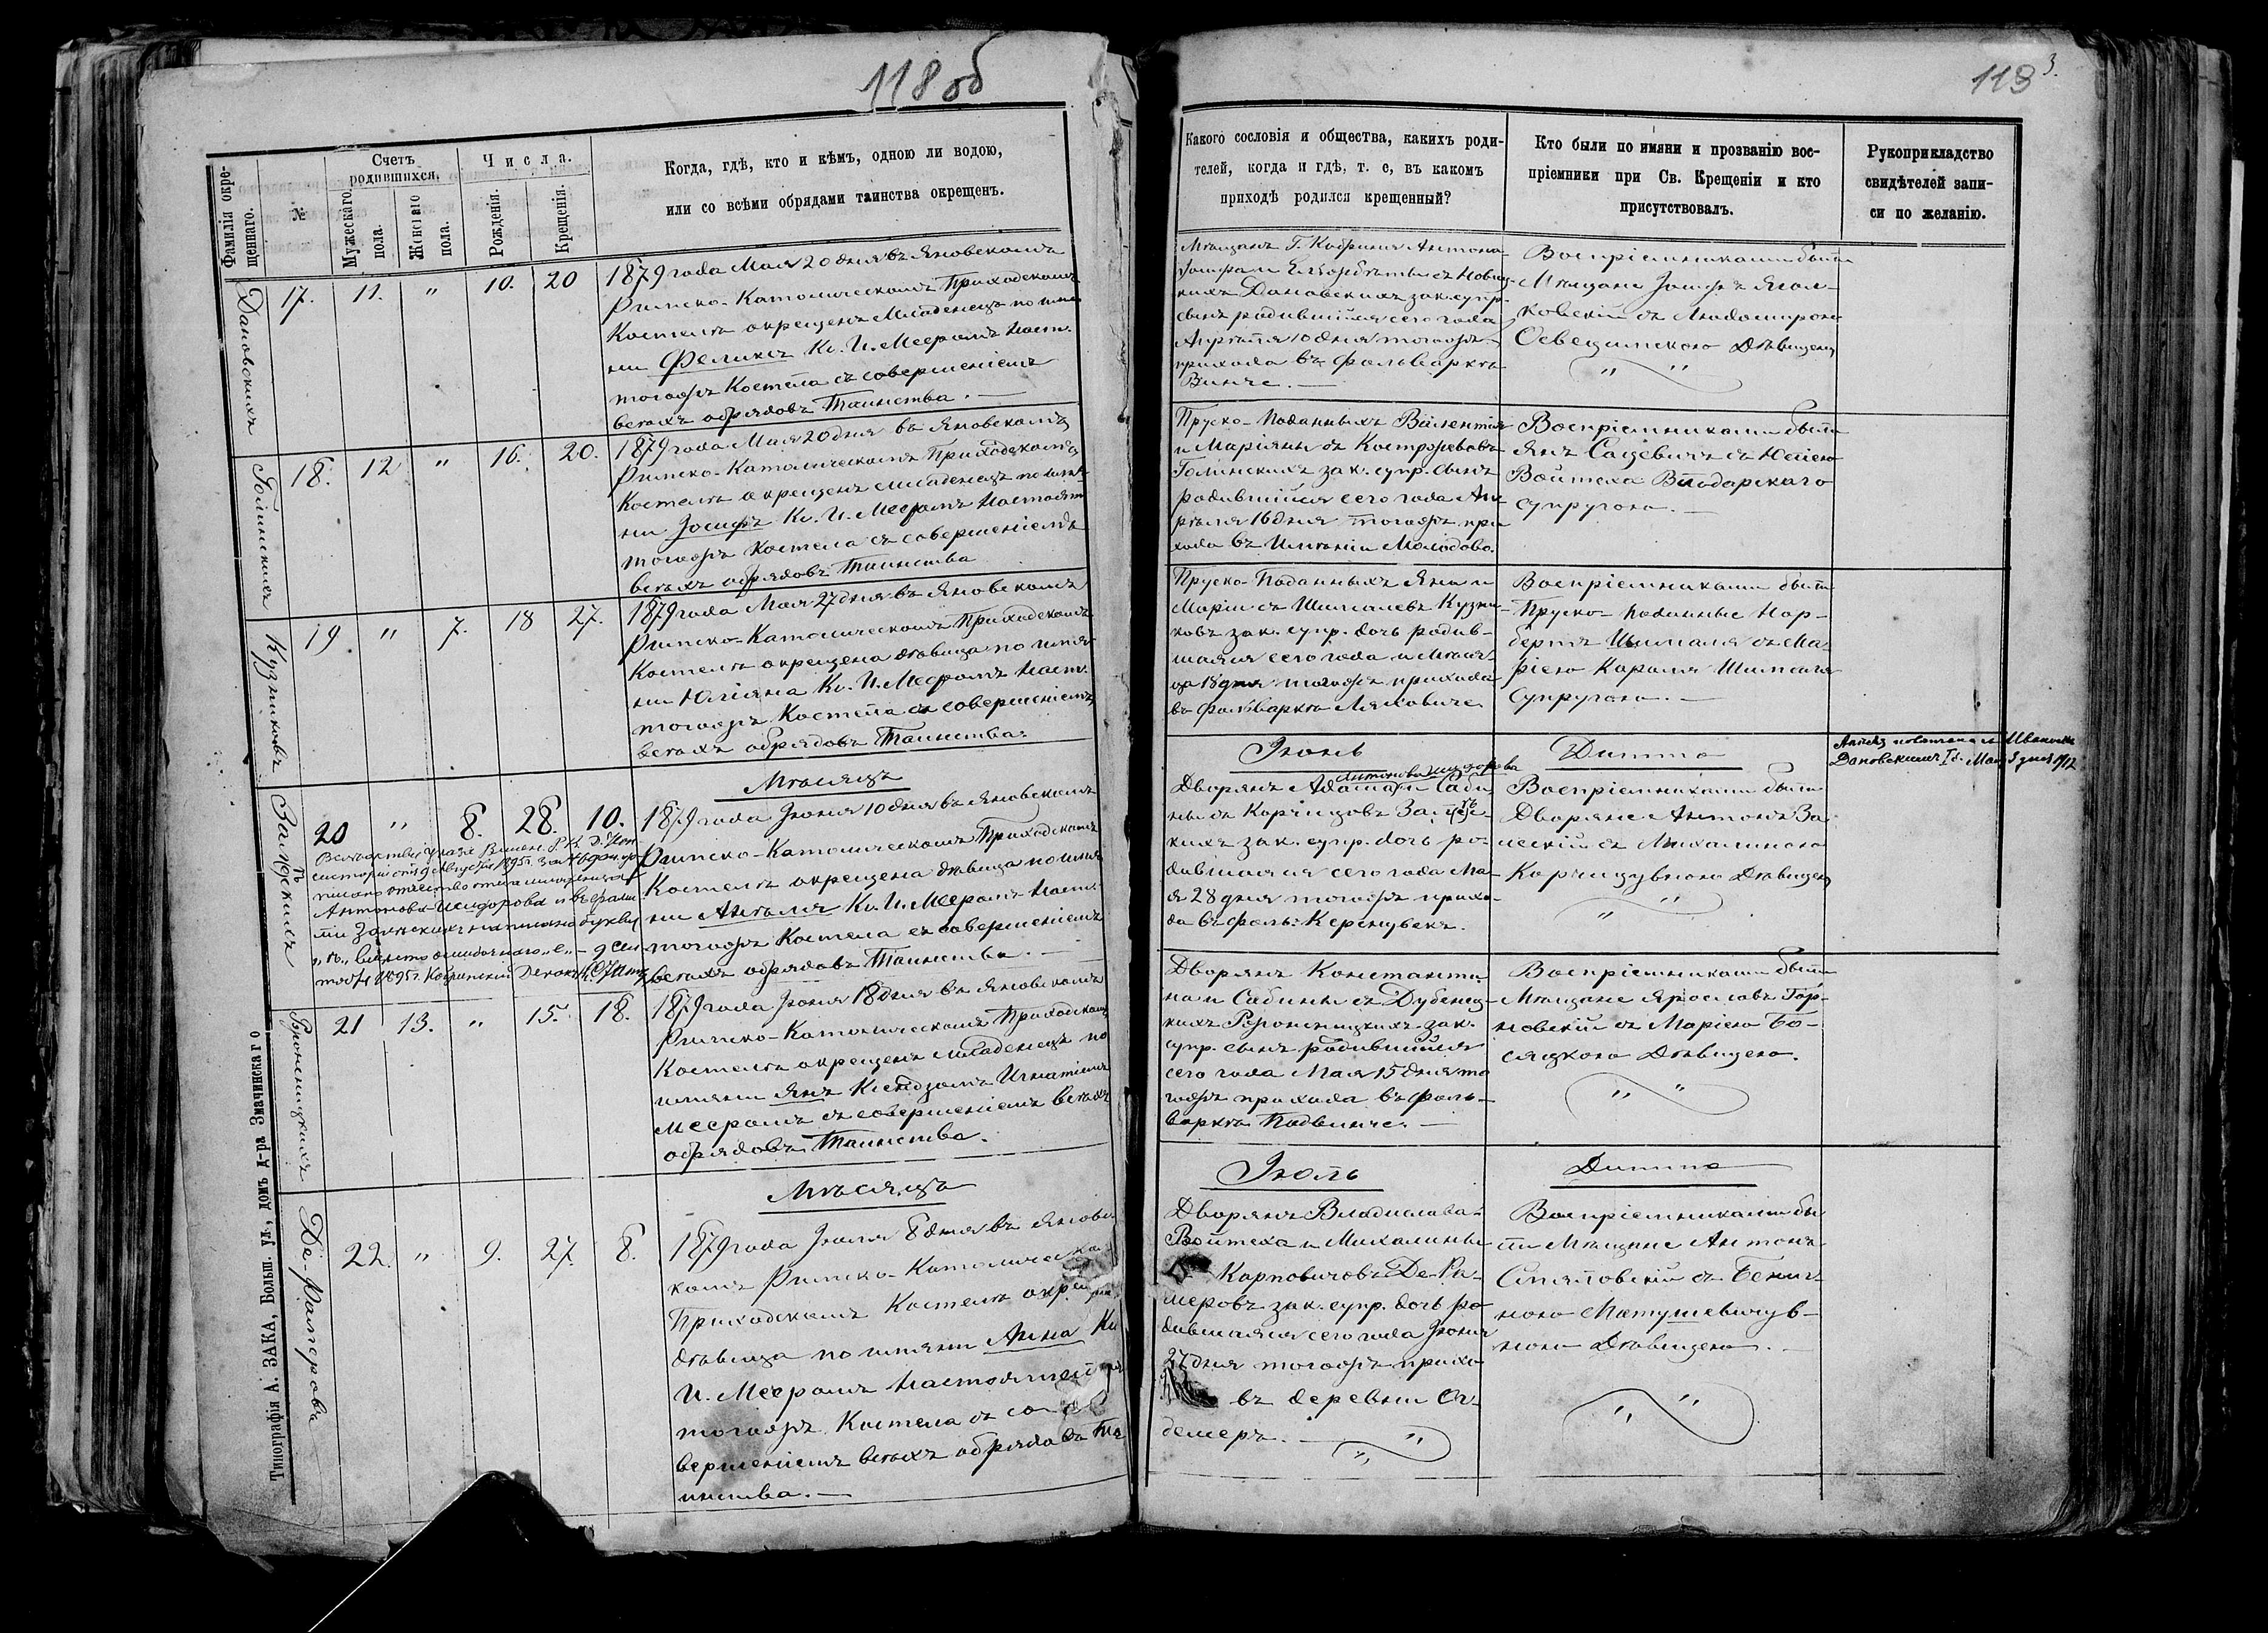 118 об
Фамилія окре-
щеннаго.
№
Счетъ
родившихся.
Мужескаго
пола.
Женскаго
пола.
Числа.
Рожденія.
Крещенія.
Когда, гдѣ, кто и кѣмъ, одною ли водою,
или со всѣми обрядами таинства окрещенъ.
Дановскихъ
17. 11. " 10. 20
1879 года Мая 20 дня въ Яновскомъ
Римско-Католическомъ Приходскомъ
Костелѣ окрещенъ младенецъ по име-
ни Феликсъ Кс. И. Месромъ Наст.
тогожъ Костела съ совершеніемъ
всѣхъ обрядовъ Таинства. —
Голинскихъ
18. 12 " 16. 20.
1879 года Мая 20 дня въ Яновскомъ
Римско-Католическомъ Приходскомъ
Костелѣ окрещенъ младенецъ по имя-
ни Іосифъ Кс. И. Месромъ Настоят.
тогожъ Костела съ совершеніемъ
всѣхъ обрядовъ Таинства
Кузниковъ
19 " 7. 18 27.
1879 года Мая 27 дня въ Яновскомъ
Римско-Католическомъ Приходскомъ
Костелѣ окрещена дѣвица по имя-
ни Юліяна Кс. И. Месромъ Наст.
тогожъ Костела съ совершеніемъ
всѣхъ обрядовъ Таинства.
Мѣсяцъ
20 " 8. 28. 10.
1879 года Іюня 10 дня въ Яновскомъ
Римско-Католическомъ Приходскомъ
Костелѣ окрещена дѣвица по имя-
ни Анѣля Кс. И. Месромъ Наст.
тогожъ Костела съ совершеніемъ
всѣхъ обрядовъ Таинства. —
Антонова-Исидорова
Кобринскій Деканъ
Вронницкихъ
21 13. " 15. 18.
1879 года Іюня 18 дня въ Яновскомъ
Римско-Католическомъ Приходскомъ
Костелѣ окрещенъ младенецъ по
имяни Янъ Ксендзомъ Игнатіемъ
Месромъ съ совершеніемъ всѣхъ
обрядовъ Таинства.
Мѣсяцъ
Де-Рамеровъ
22. " 9. 27. 8.
1879 года Іюля 8 дня въ Яновс-
комъ Римско-Католическо-
Приходскомъ Костелѣ окре
дѣвица по имяни Анна Кс
И. Месромъ Настоятел
тогожъ Костела съ со
вершеніемъ всѣхъ обрядовъ Та
инства. —
Типографія А. ЗАКА, Больш. ул., домъ д-ра Значинскаго
113 3.
Какого сословія и общества, какихъ роди-
телей, когда и гдѣ, т. е, въ какомъ
приходѣ родился крещенный?
Кто были по имяни и прозванію вос-
пріемники при Св. Крещеніи и кто
присутствовалъ.
Рукоприкладство
свидѣтелей запи-
си по желанію.
Мѣщанъ Г. Кобриня Антона
Іосифа и Елзбѣты съ Новиц-
кихъ Дановскихъ зак. супр.
сынъ родившійся сего года
Апрѣля 10 дня тогожъ
прихода въ фольваркѣ
Винче. —
Воспріемниками были
Мѣщане Іосифъ Ягол-
ковскій съ Людомирою
Освецимскою Дѣвицею
" "
Пруско-Поданныхъ Валентія
и Маріяны съ Костржевовъ
Голинскихъ зак. супр. сынъ
родившійся сего года Ап-
рѣля 16 дня тогожъ при
хода въ Имѣніи Молодово.
Воспріемниками были
Янъ Сацевичъ съ
Войтеха Влодарскаго
супругою. —
Пруско-Поданныхъ Яна и
Маріи съ Шималевъ Кузни-
ковъ зак. супр. дочь родив-
шаяся сего года и Мѣся-
ца 18 дня тогожъ прихода
въ фольваркѣ Ляховиче
Воспріемниками были
Пруско-Поданные Нор-
бертъ Шималя съ Ма-
ріею Кароля Шималя
Супругою. —
Іюнь
Дитто
Антонова-Исидорова
Дворянъ Адама и Саби-
ны съ Корчицовъ За
кихъ зак. супр. дочь ро-
дившаяся сего года Ма-
я 28 дня тогожъ прихо-
да въ фоль: Керещувекъ.
Воспріемниками были
Дворяне Антонъ За
лескій съ Михалиною
Корчицувною Дѣвицею
" "
Дворянъ Константи-
на и Сабины съ Дубениц-
кихъ Вронницкихъ зак.
супр. сынъ родившійся
сего года Мая 15 дня то
гожъ прихода въ фоль-
варкѣ Подвинче. —
Воспріемниками были
Мѣщане Ярославъ Гор-
новскій съ Маріею Бо-
сяцкою Дѣвицею.
" "
Іюль
Дитто
Дворянъ Владислава-
Войтеха и Михалины
Карповичовъ Де-Ра-
меровъ зак. супр. дочь ро
дившаяся сего года Іюня
27 дня тогожъ прихо
въ деревни Ог-
демеръ. — "
Воспріемниками бы
ли Мѣщане Антонъ
съ Бениг-
ною Матушевичув-
ною Дѣвицею. —
" "